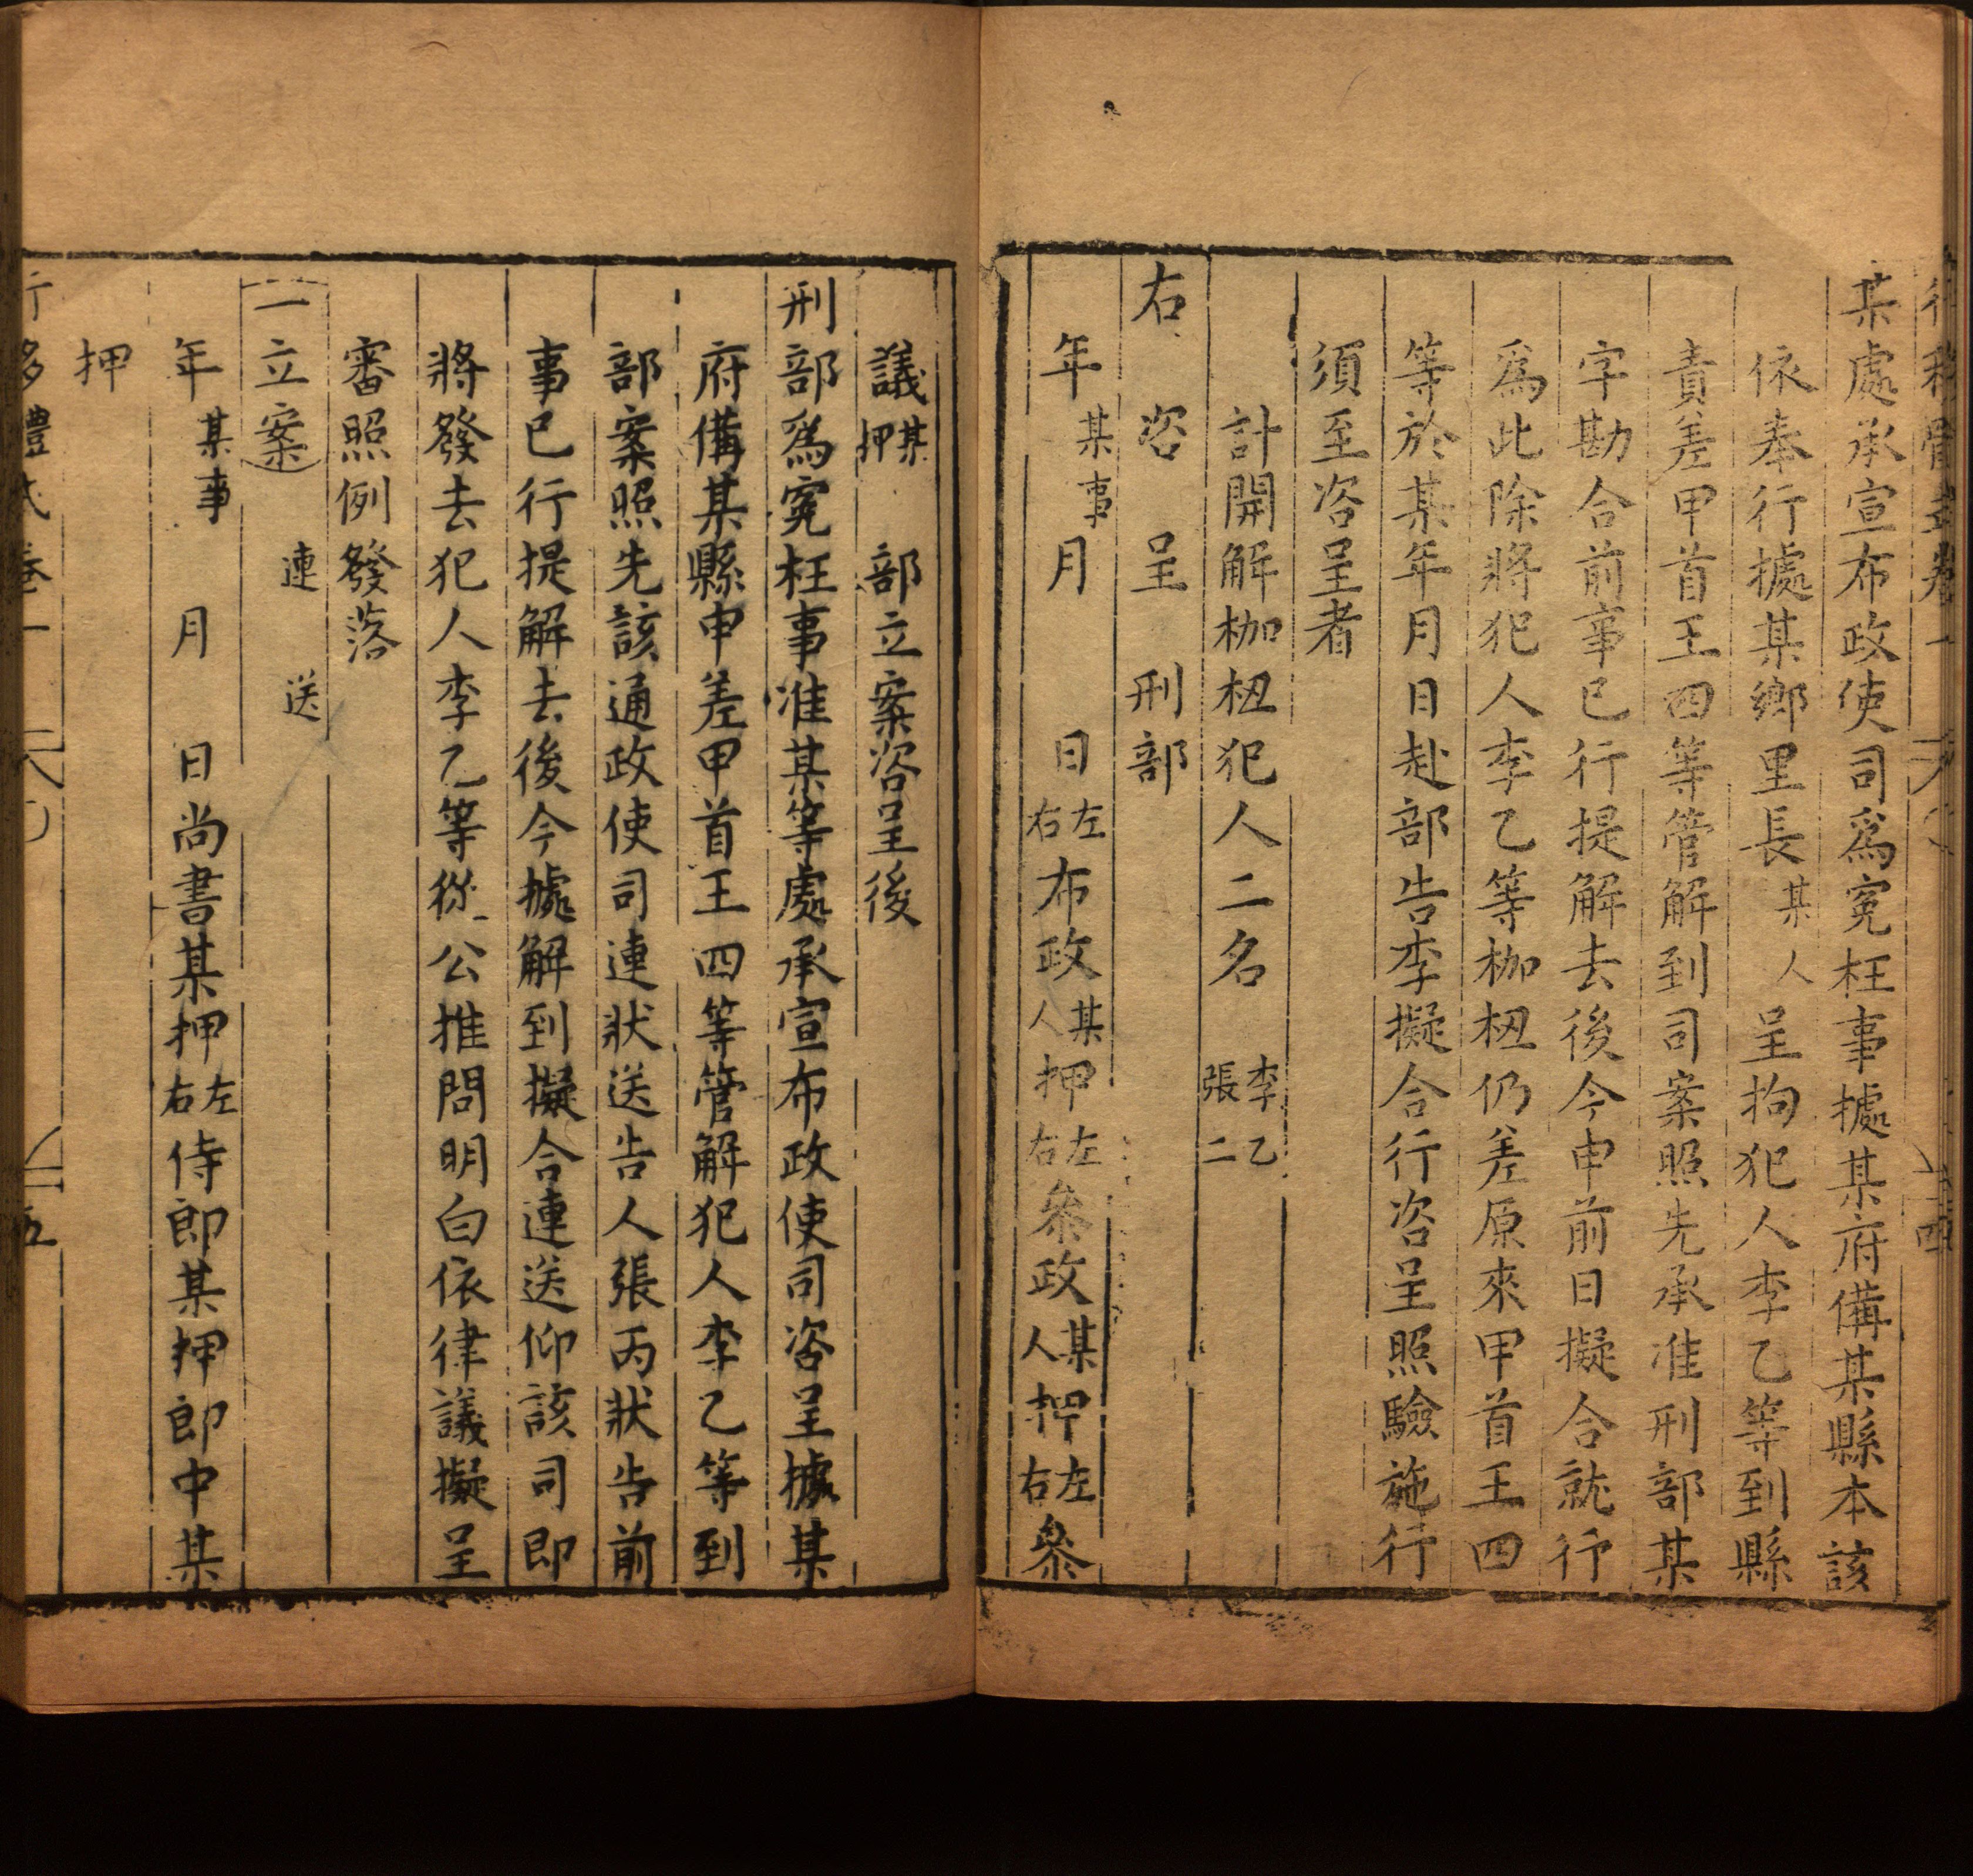 某處承宣布政使司爲寃枉事據某府備某縣本該
依奉行據某鄉里長某人呈拘犯人李乙等到縣
責差甲首王四等管解到司案照先承准刑部某
字勘合前事已行提解去後今申前日擬合就行
爲此除將犯人李乙等枷杻仍差原來甲首王四
等於某年月日赴部告李擬合行咨呈照驗施行
須至咨呈者
計開解枷杻犯人二名 李乙 張二
右 咨 呈 刑部
年 某事 月 日 左右 布政 某人 押 左右 叅政 某人 押 左右 叅
議 某押 部立案咨呈後
刑部爲寃枉事准某等處承宣布政使司咨呈據某
府備某縣申差甲首王四等管解犯人李乙等到
部案照先該通政使司連狀送告人張丙狀告前
事已行提解去後今據解到擬合連送仰該司即
將發去犯人李乙等從公推問明白依律議擬呈
審照例發落
一立案 連 送
年 某事 月 日尚書某押左右侍郎某押郎中某
押
卷一 五